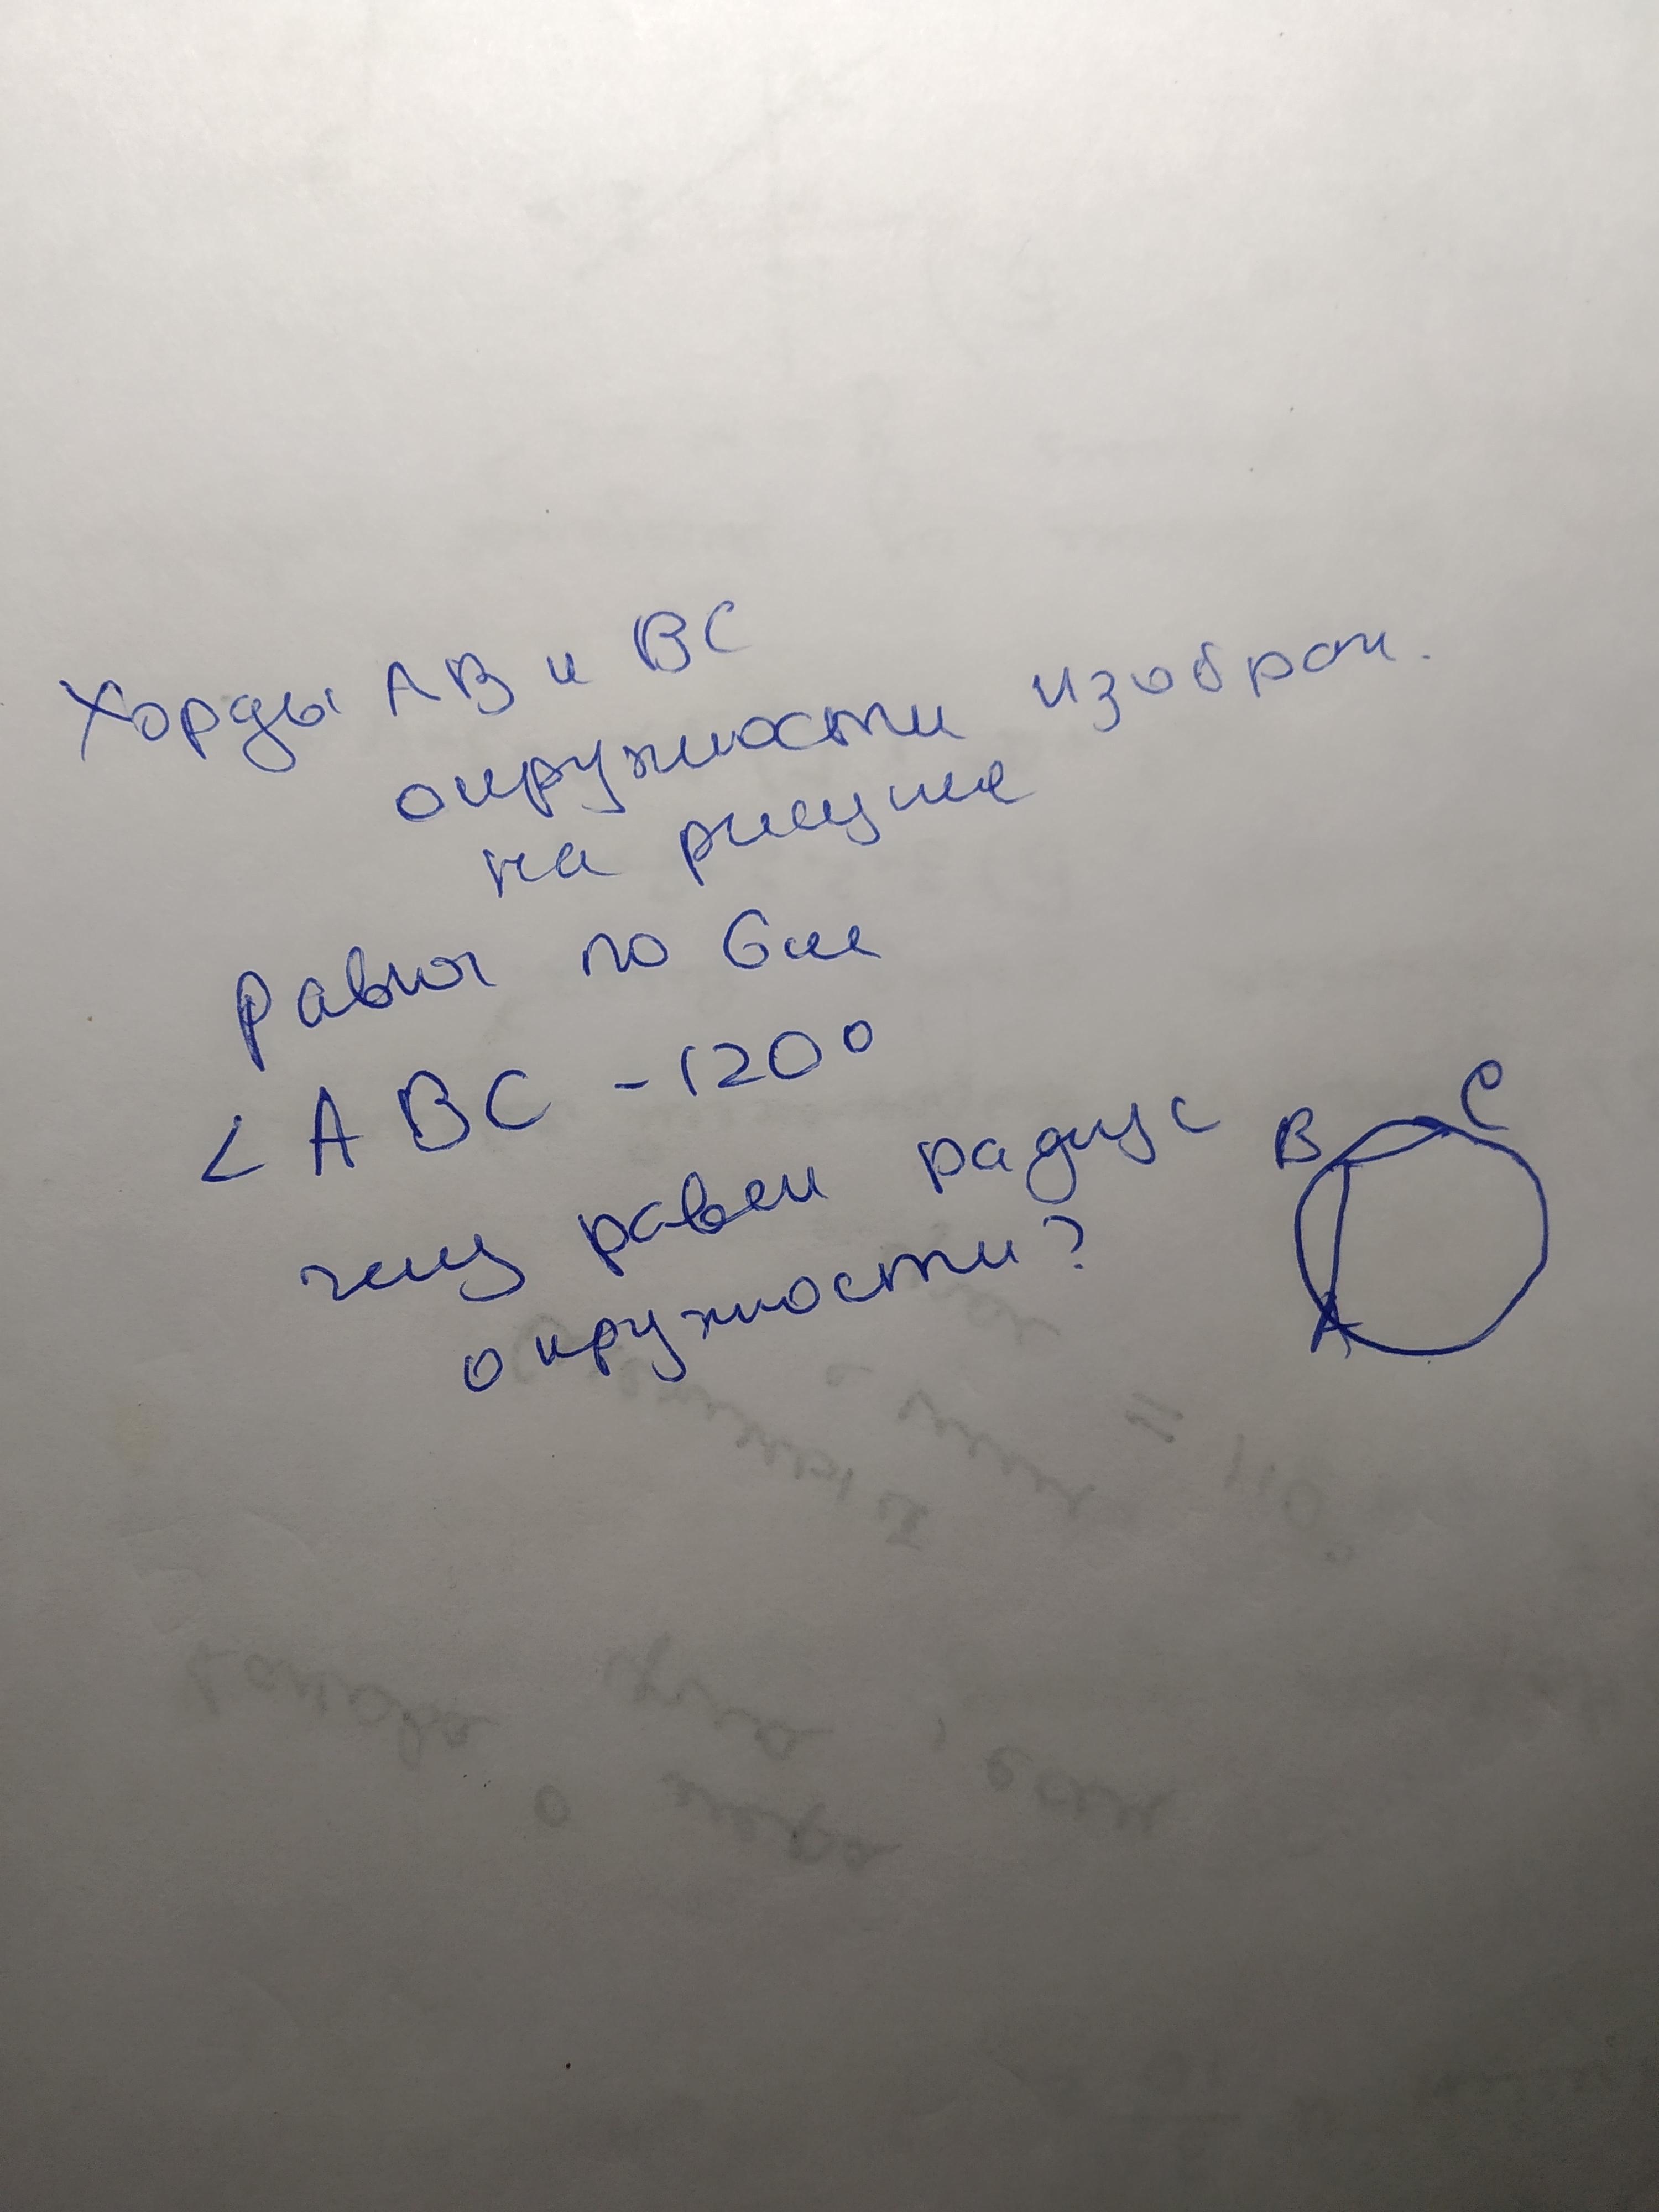 Хорды АВ и ВС
окружности изображ.
на рисунке
равны по 6см
<АВС - 120°
чему равен радиус
окружности?
В С
А